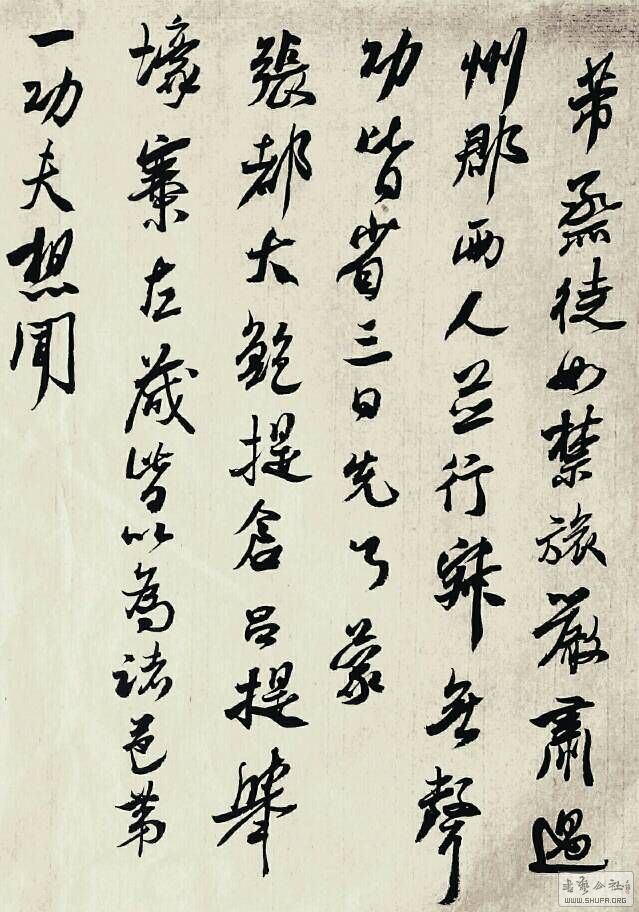 芾烝徒如禁旅嚴肅過
州郡兩人並行寂無聲
功皆省三日先了蒙
張都大鮑提倉呂提舉
壕寨左藏皆以為諸邑第
一功夫想聞
书艺公社
WWW.SHUFA.ORG